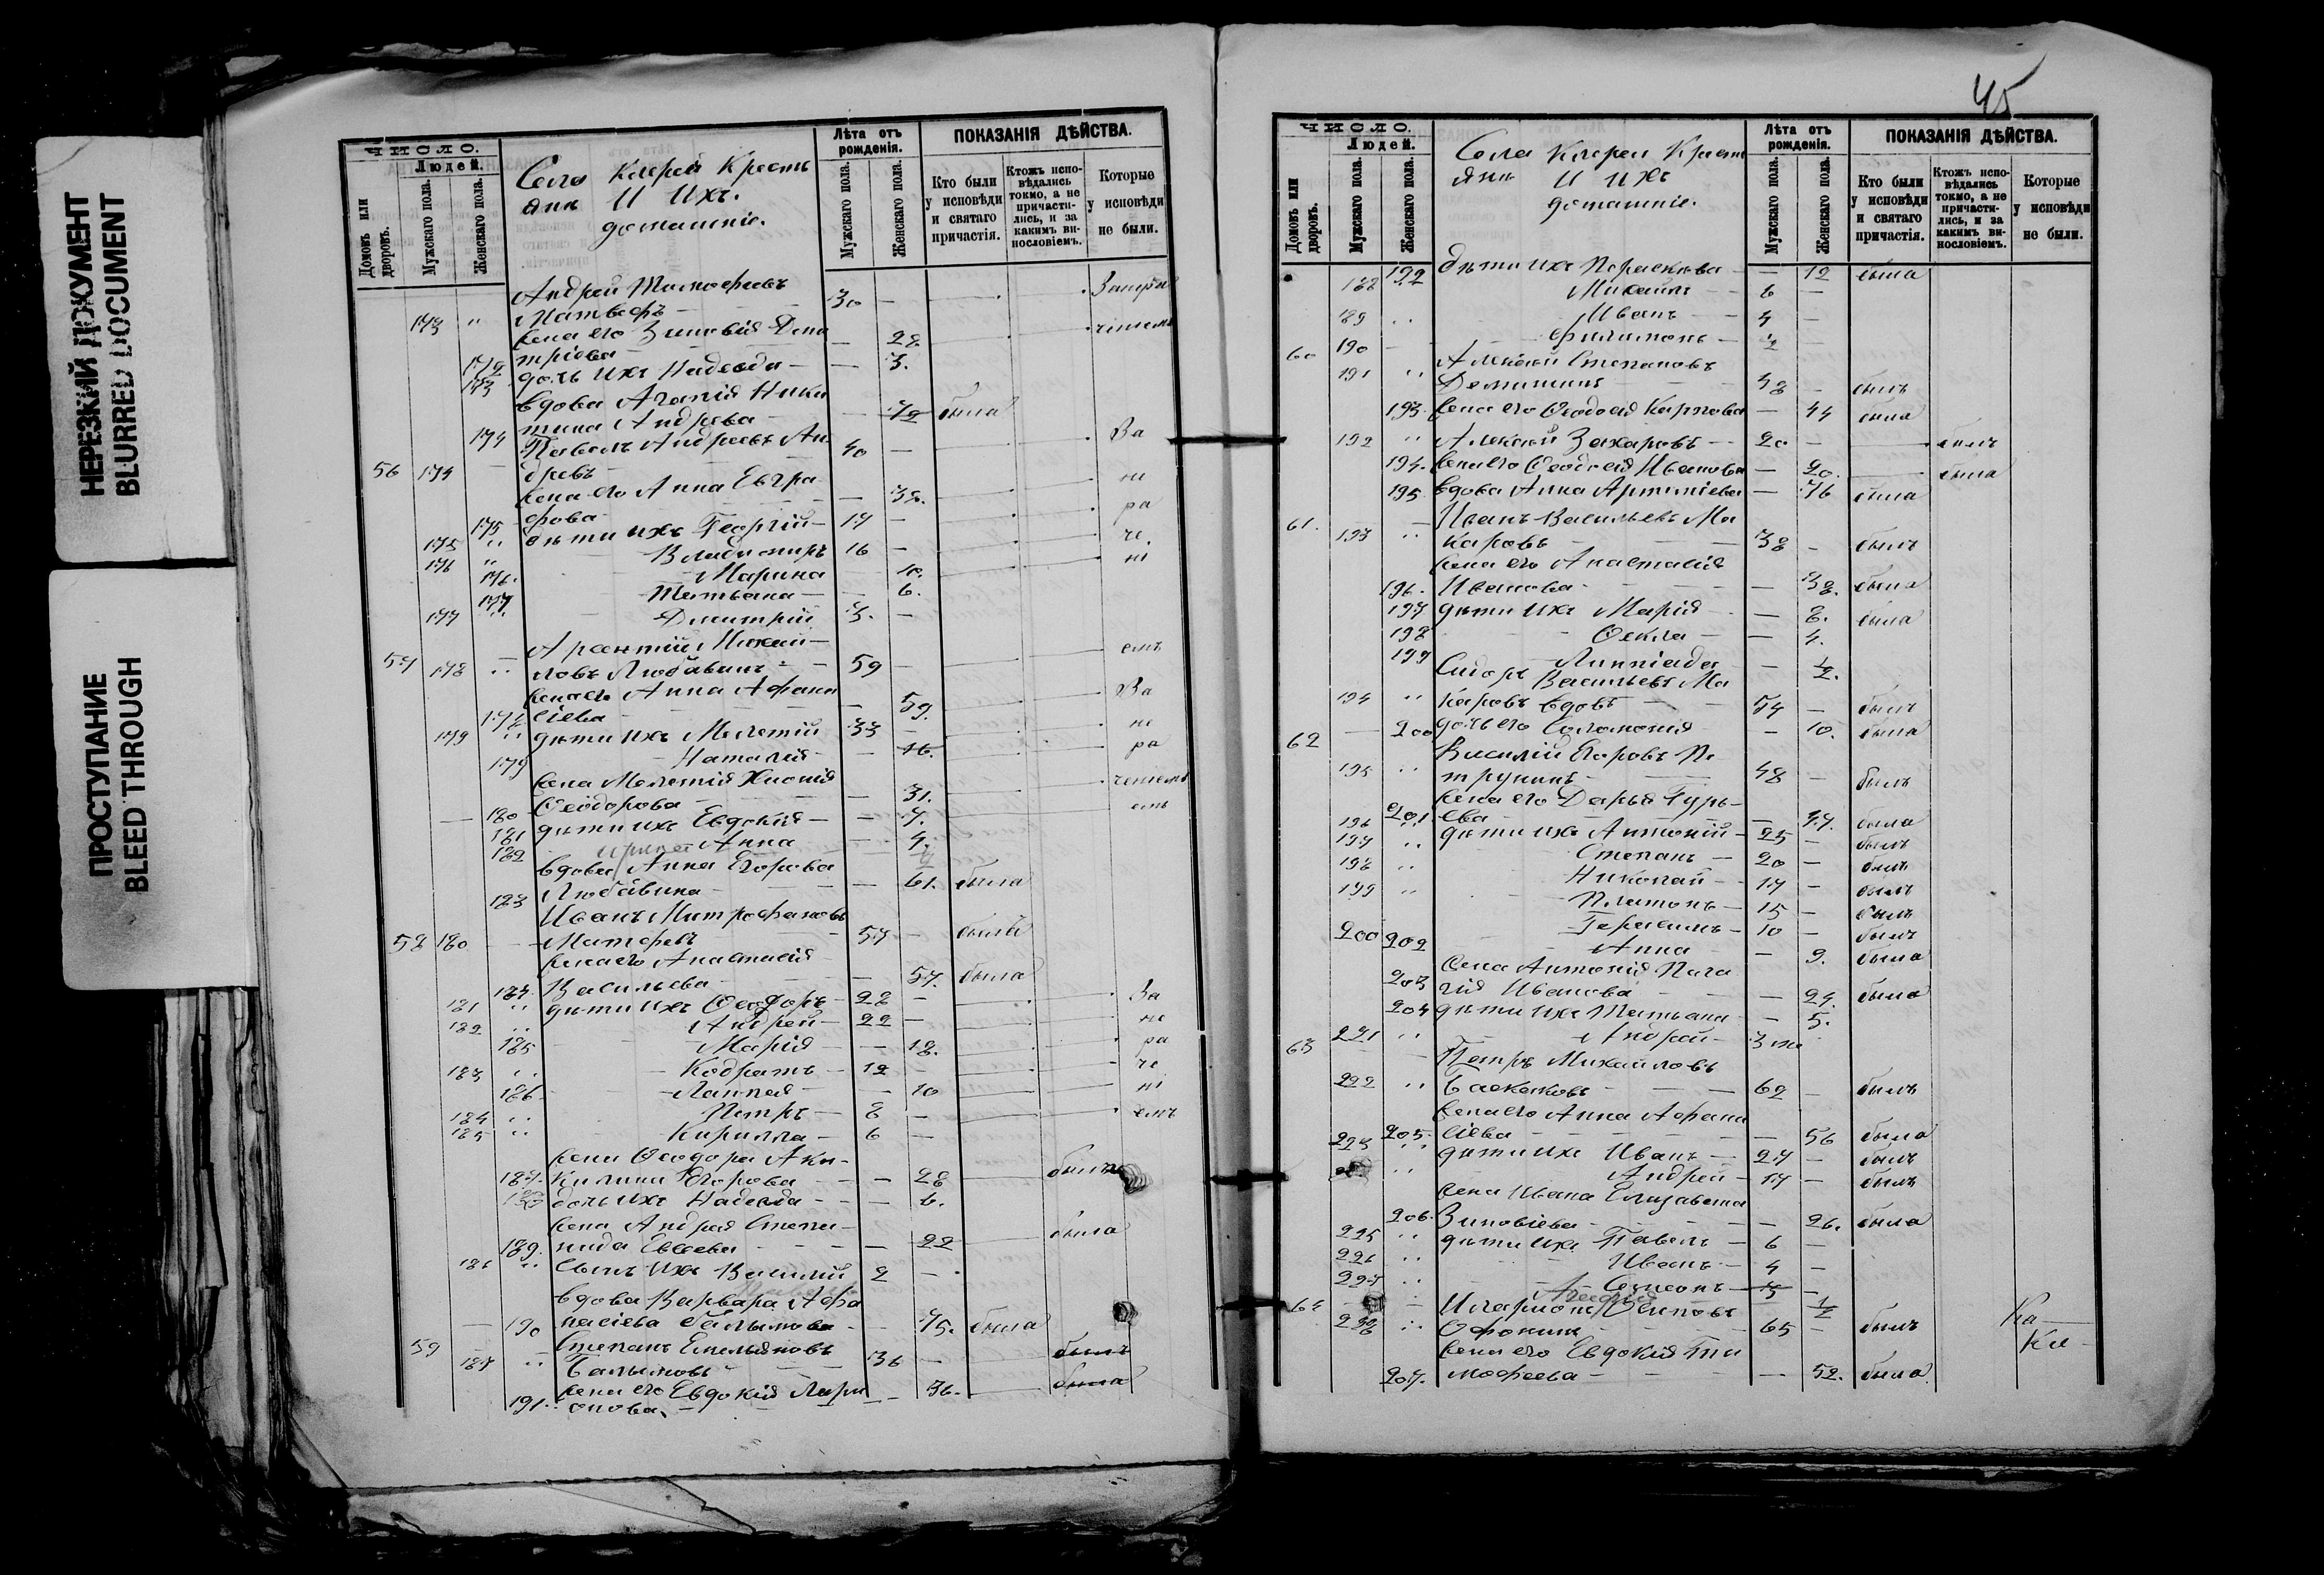 НЕРЕЗКИЙ ДОКУМЕНТ
BLURRED DOCUMENT
ПРОСТУПАНИЕ
BLEED THROUGH
ЧИСЛО.
Людей.
Домовъ или дворовъ.
Мужскаго пола.
Женскаго пола.
Села Крестьянъ И Ихъ домашніе.
Лѣта отъ рожденія.
Мужскаго пола.
Женскаго пола.
ПОКАЗАНІЯ ДѢЙСТВА.
Кто были у исповѣди и святаго причастія.
Ктожъ исповѣдались токмо, а не причастились, и за какимъ винословіемъ.
Которые у исповѣди не были.
Андрей Тимофеевъ
173 " 30 —
жена его Зиновія Дми
172 тріева — — 28
173 дочь ихъ Надежда — — 3.
вдова Агапія Ники
174 тина Андрева — — 72 была
Павелъ Андреевъ Ан
56 174 — древъ 40 — За
жена его Анна Евгра
175 фова — 38. не
175 " дѣти ихъ Георгій — 17 — ра
176 " Владиміръ 16 — че
176. Марина — 10. ні
177 Татьяна — 6.
177 " Димитрій 3. —
Михаи
57 178 " ловъ Любавинъ — 59 — емъ
жена его Анна Афана
178 сіева — 59. За
179 " дѣти ихъ Мелетій 33 — не
179 Наталія — 16. ра
жена Мелетія Хіонія
180 Ѳеодорова — 31. емъ
181 дѣти ихъ Евдокія — — 7.
182 Анна — 4.
вдова Анна Егорова
183 Любавина — — 61. была
Иванъ Митрофановъ
58 180 — 57 — былъ
жена его Анастасія
184 Васильева — — 57. была
181 " дѣти ихъ Ѳеодоръ — 28 — За
182 " Андрей — 22 — не
185 Марія — 18. ра
183 " Кодратъ — 12 — че
186 — 10 ні
184 " Петръ — 8 — емъ
185 " Кирилла — 6 —
жена Ѳеодора Аки-
187. килина Егорова — — 28 была
дочь ихъ Надежда — — 6.
жена Андрея Степа-
189. нида Евсеева — — 22 была
186 " сынъ ихъ Василій 2 —
вдова Варвара Афа
190 насіева — 75. была
59 Степанъ Емельяновъ
187 " 36 — былъ
жена его Евдокія Лари
191. онова. — 36. была
45
ЧИСЛО.
Людей.
Домовъ или дворовъ.
Мужскаго пола.
Женскаго пола.
Села Крестьянъ И Ихъ домашніе.
Лѣта отъ рожденія.
Мужскаго пола.
Женскаго пола.
ПОКАЗАНІЯ ДѢЙСТВА.
Кто были у исповѣди и святаго причастія.
Ктожъ исповѣдались токмо, а не причастились, и за какимъ винословіемъ.
Которые у исповѣди не были.
192 дѣти ихъ Параскева — — 12 была
188 Михаилъ — 6 —
189 " Иванъ — 4 —
190 — Филимонъ —
60 Алексій Степановъ
191 " 48 — былъ
193. жена его Ѳеодосія Карпова — 44 была
192 " Алексій Захаровъ — 20 — былъ
194. жена его Ѳеодосія Иванова — 20. была
195 вдова Анна — 76 была
61. — Иванъ Васильевъ Ма
193 " каровъ — 38 — былъ
жена его Анастасія
196. Иванова — — 38. была
197 дѣти ихъ Марія — — 8. была
198 Ѳекла — — 4.
199 Олимпіада — ½.
Сидоръ Васильевъ Ма
194 " каровъ вдовъ — 54 — былъ
200 дочь его Соломонія — 10. была
62 Василій Егоровъ Пе
195 " трунинъ — 48 — былъ
жена его Дарья Гурь-
201. ева — — 47. была
196 " дѣти ихъ Антоній — 25 — былъ
197 " Степанъ — 20 — былъ
198 " Николай — 17 — былъ
199 " Платонъ — 15 — былъ
200 Герасимъ — 10 — былъ
202 Анна — 9. была
жена Антонія Пела
203 гія Иванова — — 24. была
204 дѣти ихъ Татьяна — 5.
221 " Андрей — 3 м
63 Петръ Михайловъ
222 " Баскаковъ — 62 — былъ
жена его Анна Афана
205. сіева — — 56 была
223 " дѣти ихъ Иванъ — 27 — былъ
" Андрей — 17 — былъ
жена Ивана Елизавета
206. Зиновіева — — 26. была
225 " дѣти ихъ Павелъ — 6 —
226 " Иванъ — 4 —
227 " Симеонъ —
64 Иларіонъ Осиповъ
228 " 65 — былъ
жена его Евдокія Ти
207. мофеева — — 52. была